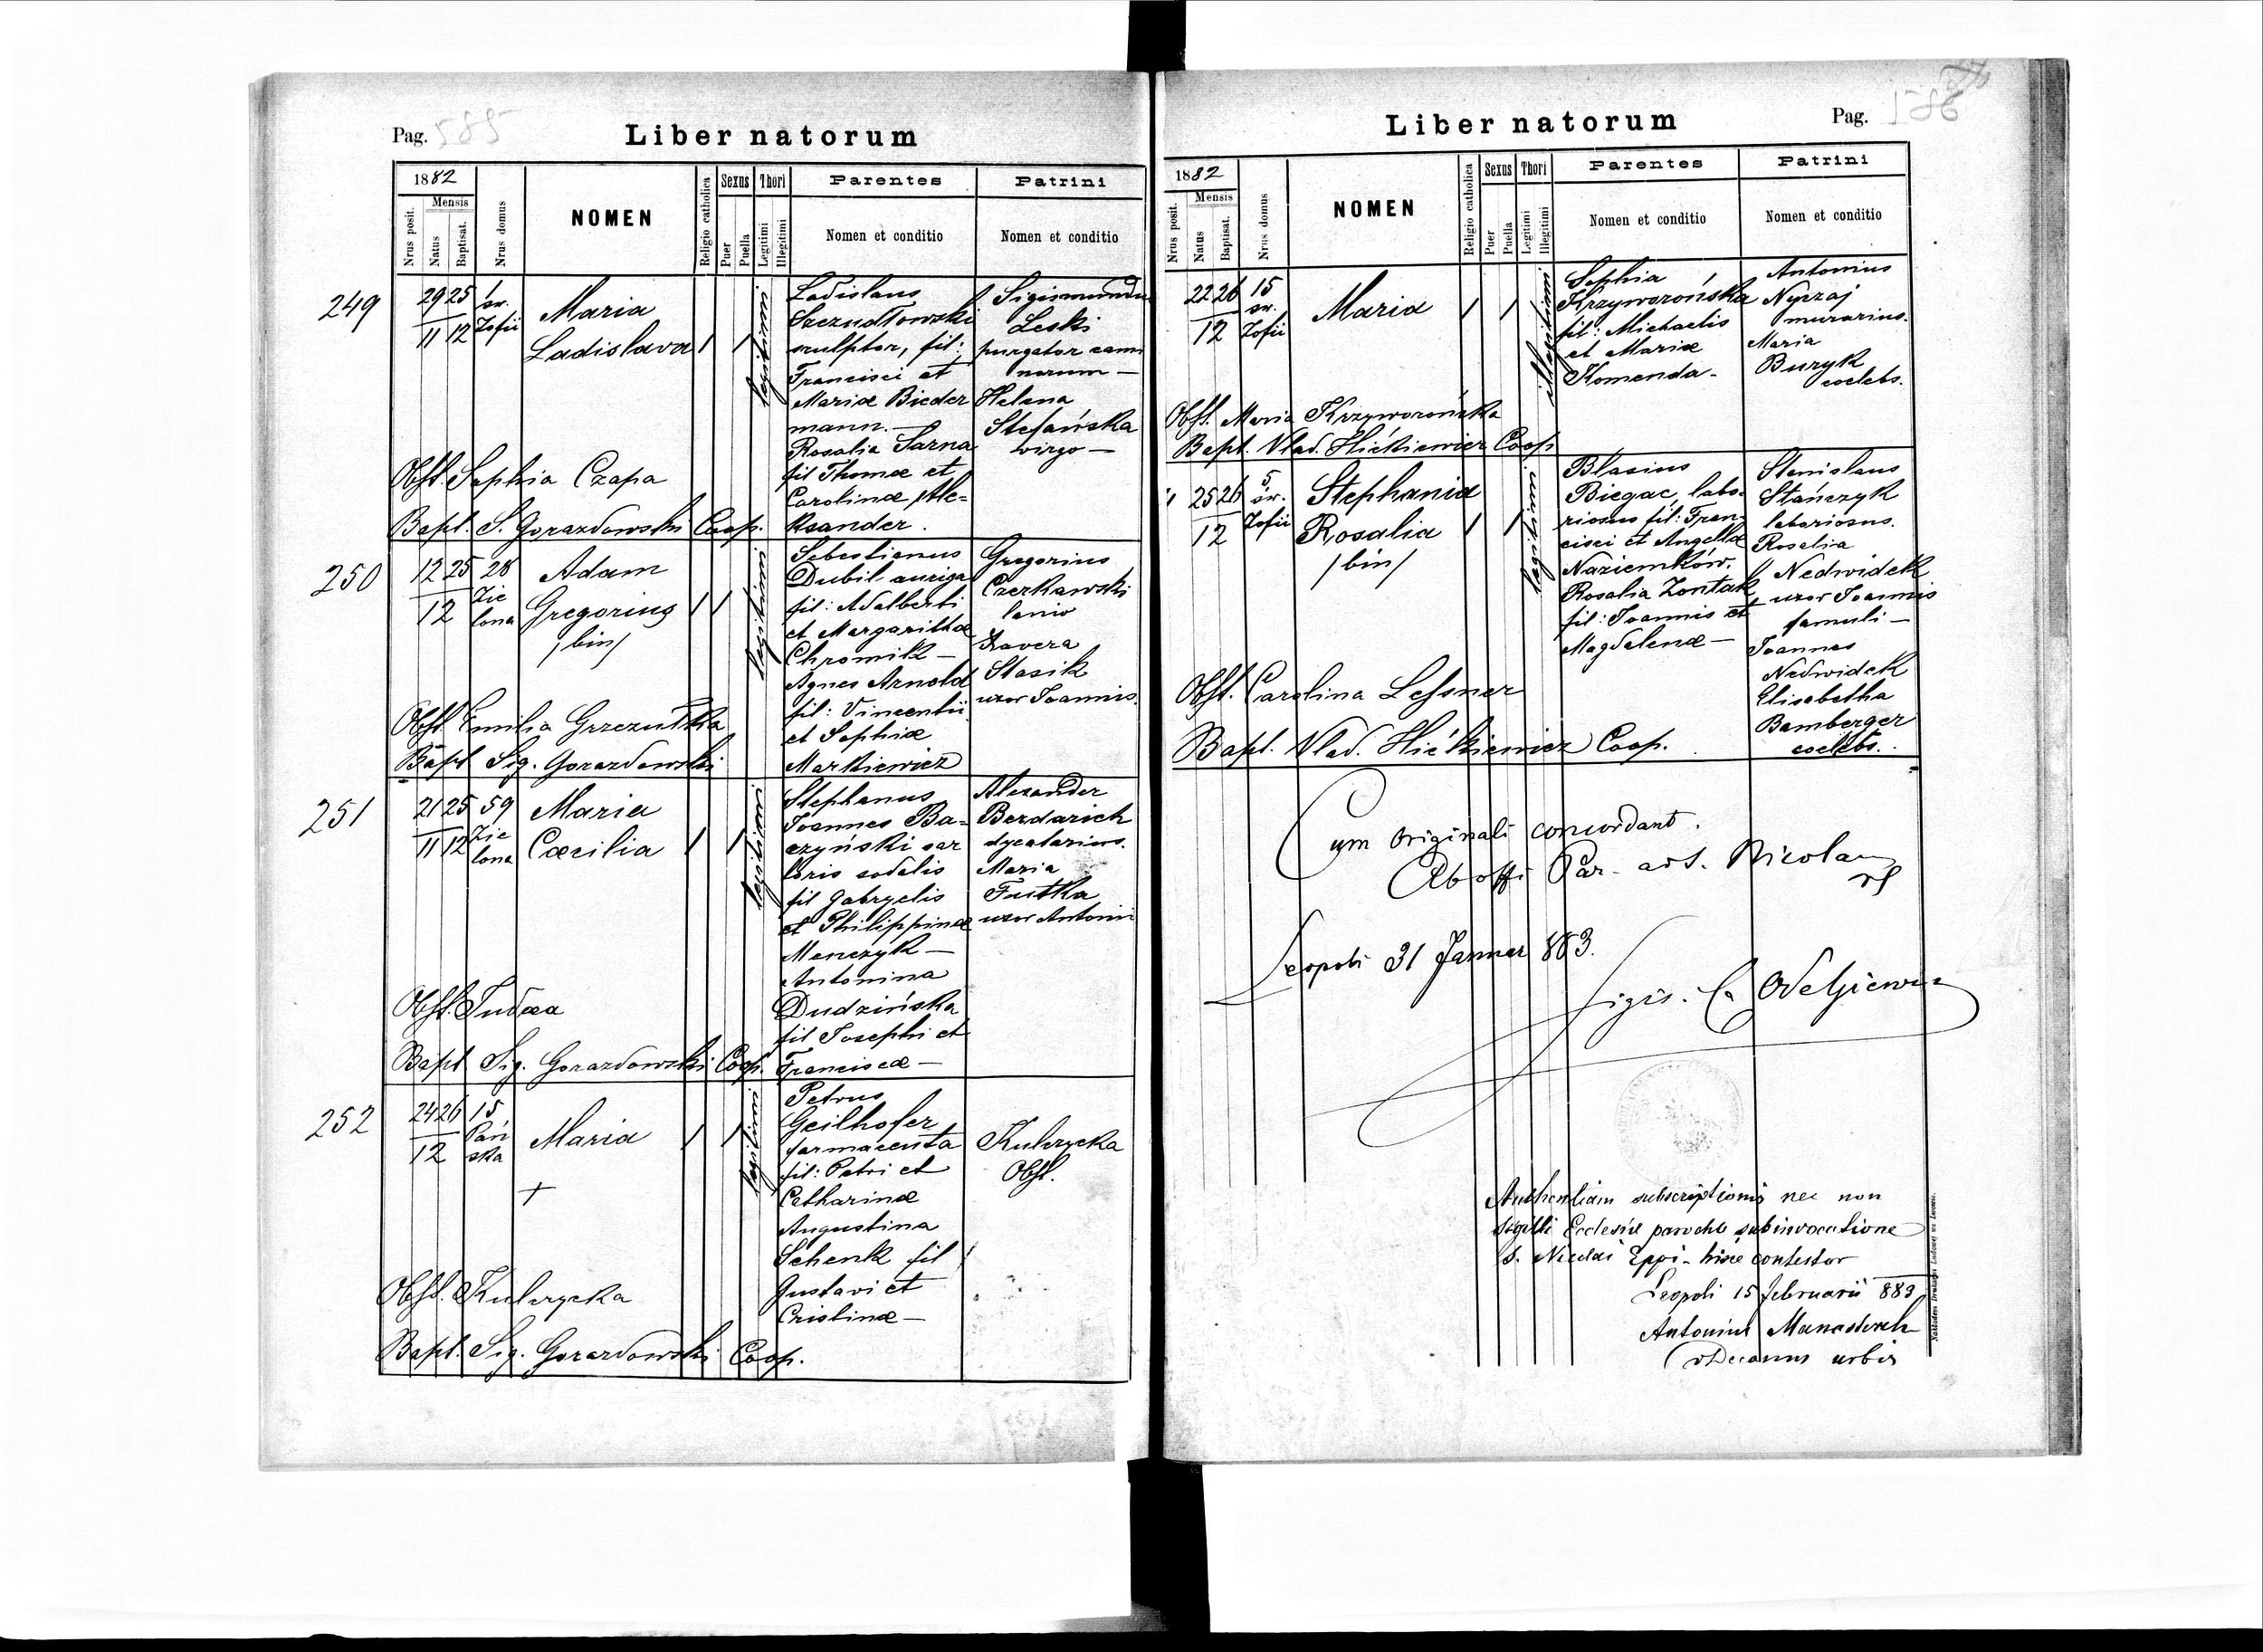 Pag. 585
Liber natorum
1882
Mensis
Nrus posit.
Natus
Baptisat.
Nrus domus
NOMEN
Religio catholica
Sexus
Puer
Puella
Thori
Legitimi
Illegitimi
Parentes
Nomen et conditio
Patrini
Nomen et conditio
249
29 25
11 12
1
św.
Zofii
Maria
Ladislava
legitimi
Ladislaus
Szczudłowski
sculptor, fil:
Francisci et
Mariæ Bieder
mann.—
Rosalia Sarna
fil Thomæ et
Carolinæ Ale=
ksander.
Sigismundus
Leski
purgator cami
norum—
Helena
Stefańska
virgo—
Obst. Sophia Czapa
Bapt. S. Gorazdowski Coop.
250
12 25
12
28
Zie
lona
Adam
Gregorius
/bin/
legitimi
Sebastianus
Dubil auriga
fil: Adalberti
et Margarithæ
Chromik—
Agnes Arnold
fil: Vincentii
et Sophiæ
Markiewicz
Gregorius
Czerkawski
lanio
Xavera
Stasik
uxor Joannis.
Obst. Emilia Grzezułka
Bapt Sig. Gorazdowski
251
21 25
11 12
59
Zie
lona
Maria
Cæcilia
legitimi
Stephanus
Joannes Ba=
czyński sar
toris sodalis
fil Gabryelis
et Philippinæ
Menczyk—
Antonina
Dudzińska
fil Josephi et
Franciscæ—
Alexander
Berdarich
dycatarius.
Maria
Futka
uxor Antonii
Obst. Judæa
Bapt Sig. Gorazdowski Coop.
252
24 26
12
15
Pań
ska
Maria
+
legitimi
Petrus
Geilhofer
farmaceuta
fil: Petri et
Catharinæ
Augustina
Schenk fil
Gustavi et
Cristinæ—
Kulczycka
Obst.
Obst. Kulczycka
Bapt. Sig. Gorazdowski Coop.
Liber natorum
Pag. 586
1882
Mensis
Nrus posit.
Natus
Baptisat.
Nrus domus
NOMEN
Religio catholica
Sexus
Puer
Puella
Thori
Legitimi
Illegitimi
Parentes
Nomen et conditio
Patrini
Nomen et conditio
22 26
12
15
św.
Zofii
Maria
illegitimi
Sophia
Krzyworońska
fil: Michaelis
et Mariæ
Komenda-
Antonius
Nyczaj
murarius.
Maria
Buryk
coelebs.
Obst. Maria Krzyworońska
Bapt. Vlad. Hićkiewicz Coop
25 26
12
5
św.
Zofii
Stephania
Rosalia
/bin/
legitimi
Blasius
Biegac, labo=
riosus fil: Fran=
cisci et Angellæ
Naziemków.
Rosalia Zontak
fil: Joannis et
Magdalenæ—
Stanislaus
Stańczyk
laboriosus.
Rosalia
Nedwidek
uxor Joannis
famuli—
Joannes
Nedwidek
Elisabetha
Bamberger
coelebs.
Obst. Carolina Lessner
Bapt. Vlad. Hićkiewicz Coop.
Cum originali concordant.
Ab offi Par. ad S. Nicolaum
Leopoli 31 Januar 883.
Authentiam subscriptionis nec non
sigilli Ecclesiæ paroch sub invocatione
S. Nicolai Eppi hisce contestor
Leopoli 15 februarii 883
Antonius
vDecanus urbis